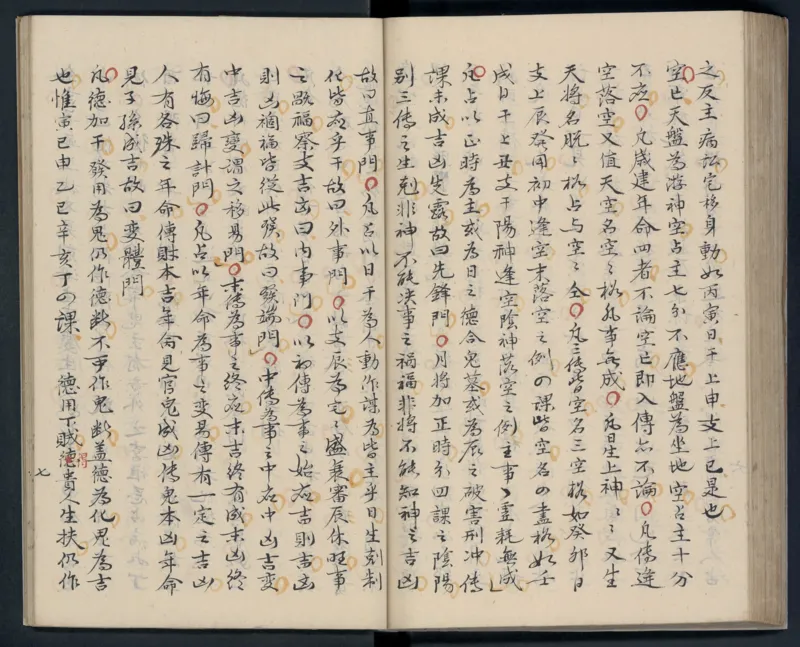 之反主病訟宅移身動如丙寅日干上申支上巳是也
空巳天盤為游神空占主七分不應地盤為坐地空占主十分
不应〇凡歳建年命四者不論空亡即入傳亦不論〇凡傳逢
空落空又值天空名空〻格凡事無成〇凡日生上神〻〻又生
天將名脫〻格占与空〻仝〇凡三傳皆空名三空格如癸卯日
支上辰發用初中逢空末落空之例の課皆空名の盡格如壬
戌日干上丑支干陽神逢空陰神落空之例主事〻虚耗無成
〇凡占以正時為主或為日之德合鬼墓或為辰之破害刑冲傳
課未成吉凶先露故曰先鋒門〇月將加正時分四課之陰陽
別三傳之生剋非神不能决事之禍福非將不能知神之吉凶
故曰直事門〇凡占以日干為人動作謀為皆主乎日生剋制
化皆应乎干故曰外事門〇以支辰為宅〻盛衰審辰休旺事
之歇福察支吉凶曰内事門〇以初傳為事之始应吉則吉凶
則凶禍福皆從此發故曰發端門〇中傳為事之中应中凶吉变
中吉凶變謂之移易門〇末傳為事之終应末吉終有成末凶終
有悔曰歸計門〇凡占以年命為事之变易傳有一定之吉凶
人有各殊之年命傳財本吉年命見官鬼成凶傳鬼本凶年命
見子孫成吉故曰变體門
〇凡德加干發用為鬼仍作德断不可作鬼断盖德為化鬼為吉
也惟寅巳申乙巳辛亥丁の課 德用下賊德得貴人生扶仍作
七